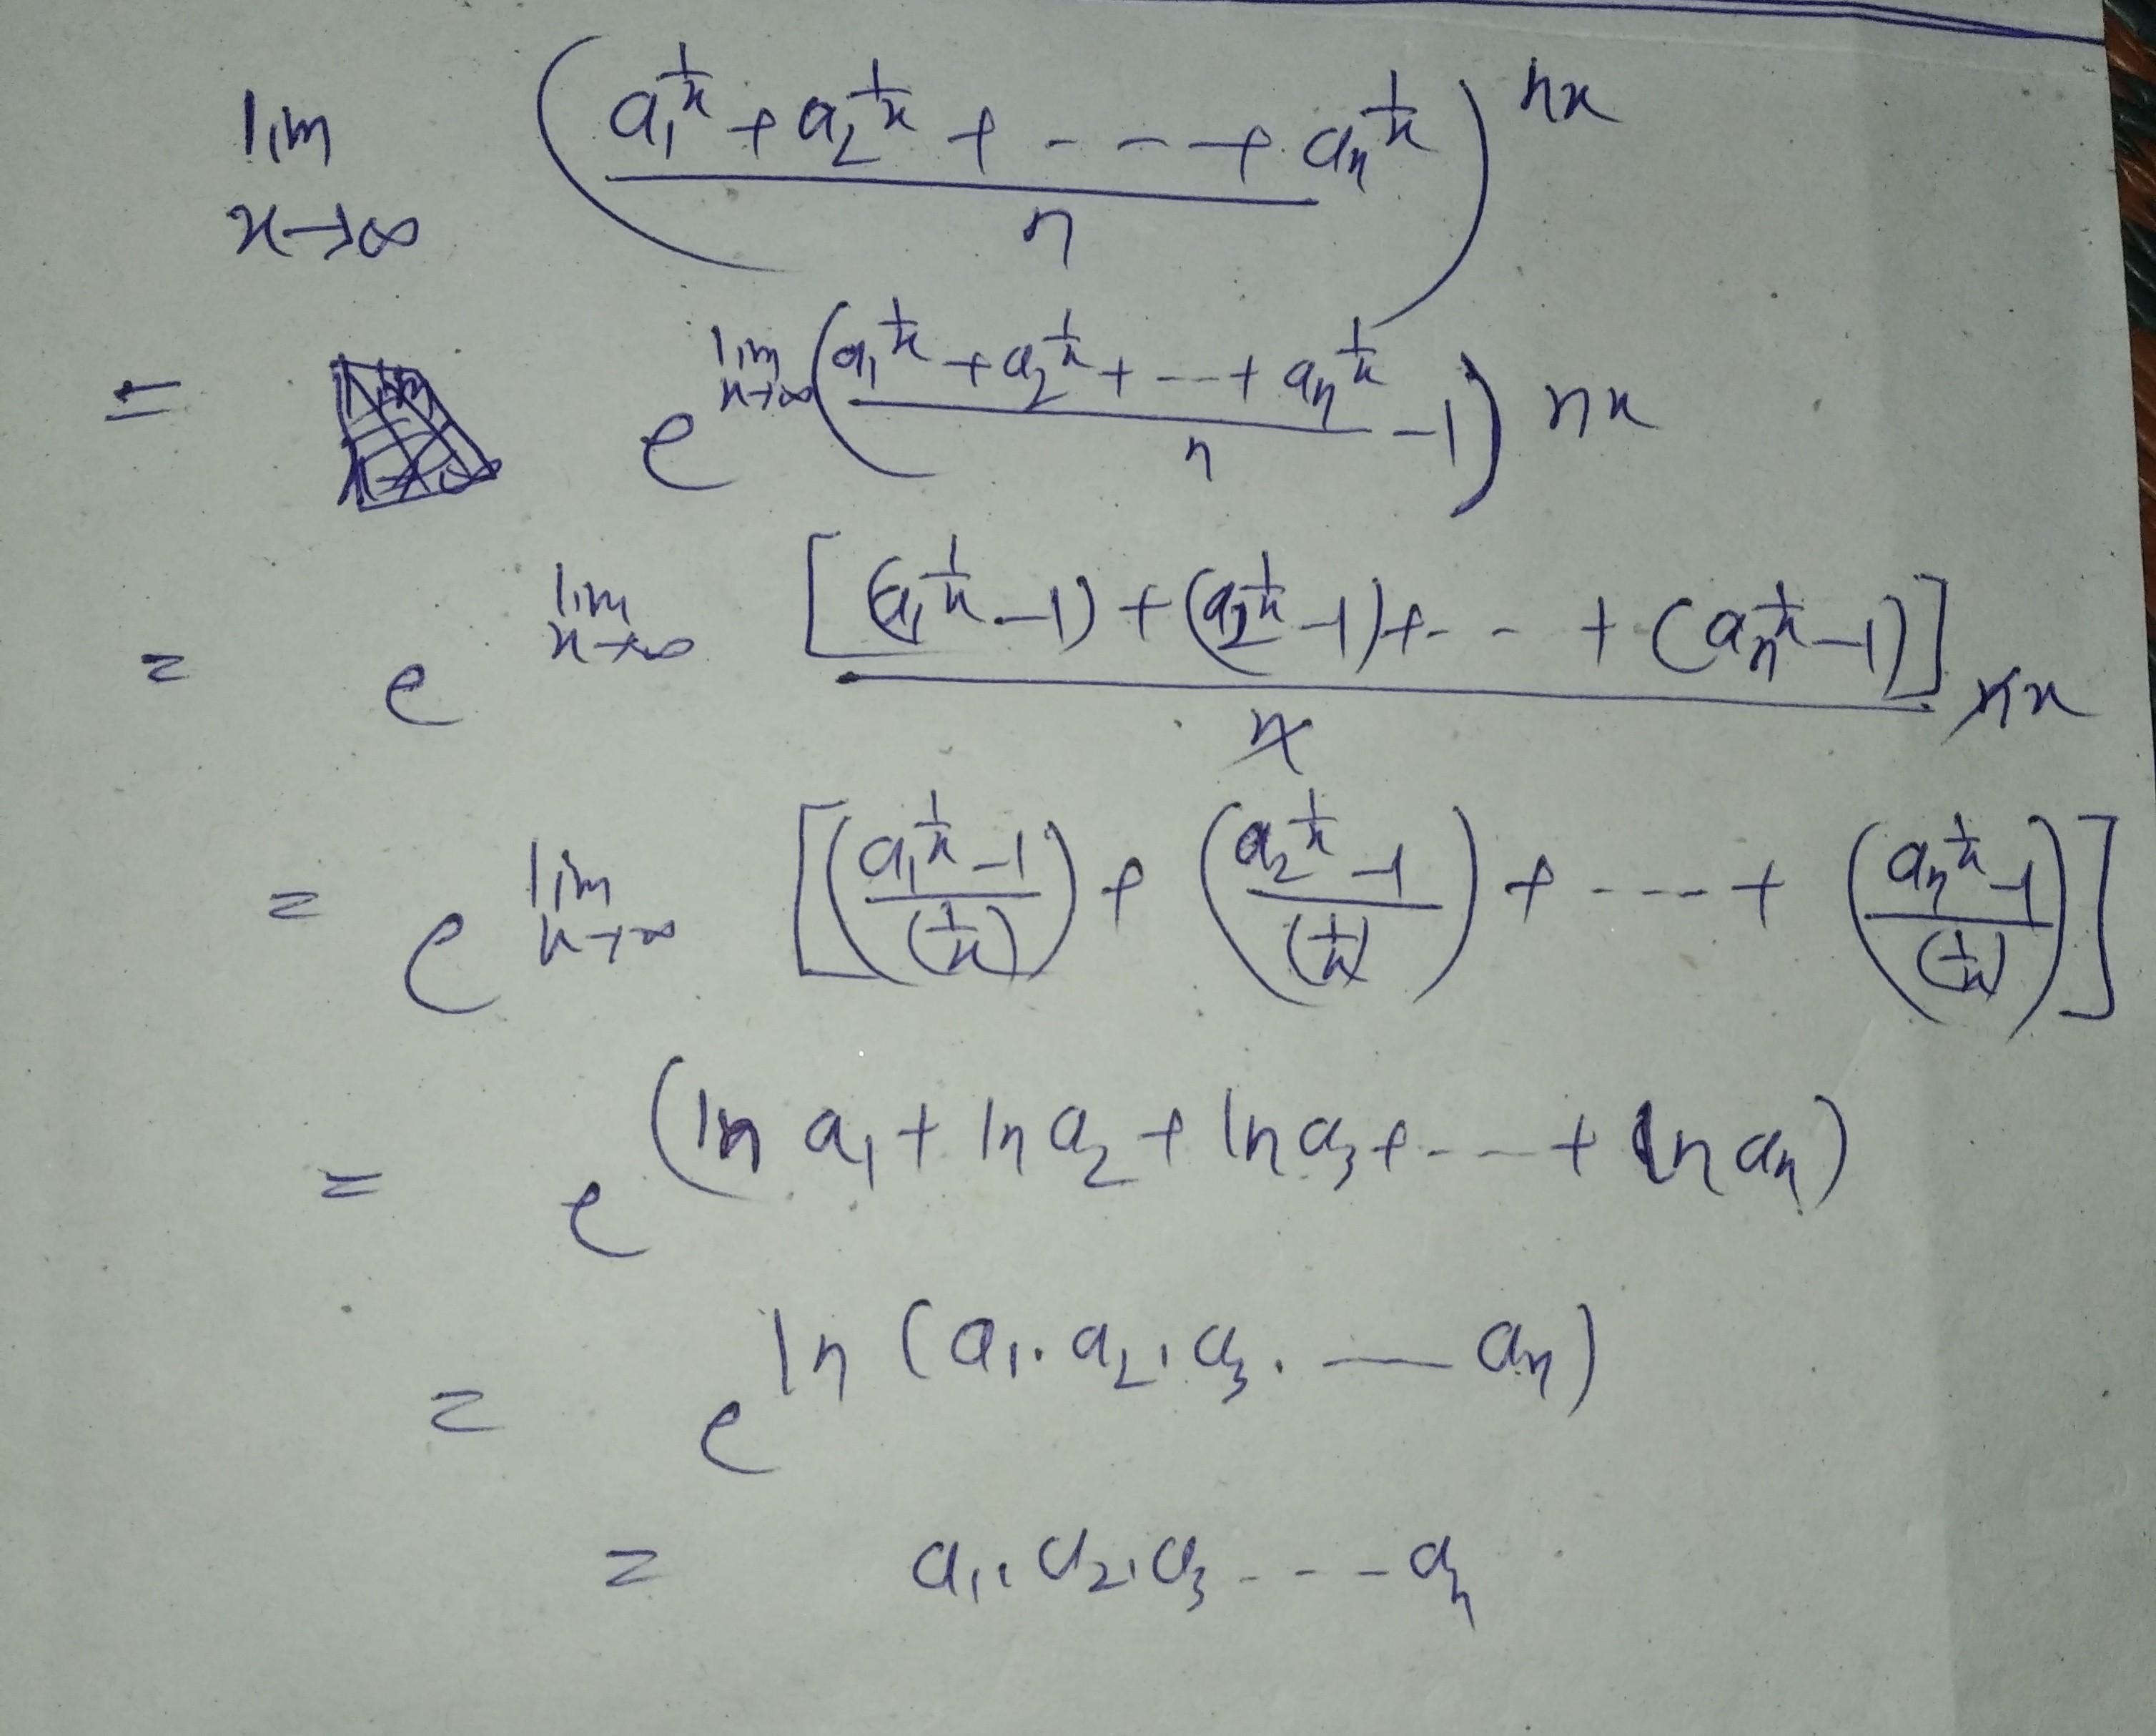 lim x→∞ ( (a₁^(1/x) + a₂^(1/x) + - - - + aₙ^(1/x)) / n )^(nx)
= e^( lim x→∞ ( (a₁^(1/x) + a₂^(1/x) + - - - + aₙ^(1/x)) / n - 1 ) nx )
= e^( lim x→∞ [ (a₁^(1/x) - 1) + (a₂^(1/x) - 1) + - - - + (aₙ^(1/x) - 1) ] / n · nx )
= e^( lim x→∞ [ ((a₁^(1/x) - 1) / (1/x)) + ((a₂^(1/x) - 1) / (1/x)) + - - - - + ((aₙ^(1/x) - 1) / (1/x)) ] )
= e^(ln a₁ + ln a₂ + ln a₃ + - - - + ln aₙ)
= e^(ln (a₁ . a₂ . a₃ . — aₙ))
= a₁ . a₂ . a₃ - - - - aₙ